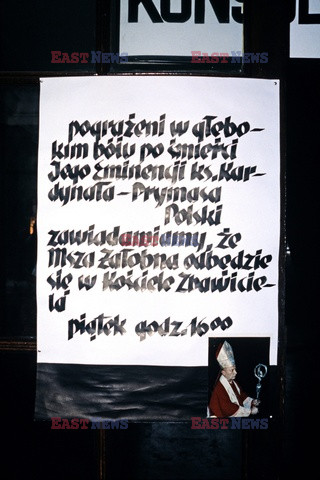 KONSUL
EAST NEWS EAST NEWS
pogrążeni w głębo-
kim bólu po śmierci
Jego Eminencji ks. Kar-
dynała – Prymasa
Polski
zawiadamiamy, że
Msza Żałobna odbędzie
się w Kościele Zbawicie-
la
piątek godz. 16 00
EAST NEWS EAST NEWS